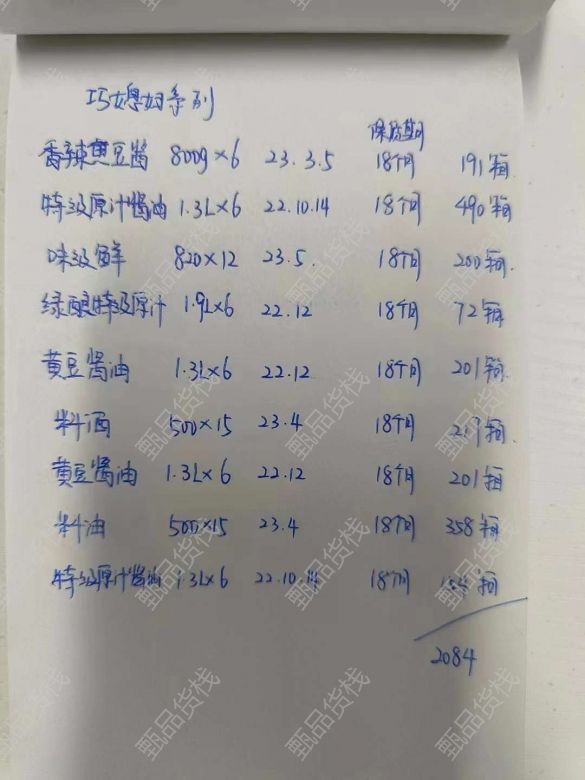 巧媳妇系列
保质期
香辣黄豆酱 800g×6 23.3.5 18个月 191箱
特级原汁酱油 1.3L×6 22.10.14 18个月 490箱
味级鲜 820×12 23.5. 18个月 200箱
绿酿特级原汁 1.9L×6 22.12 18个月 72箱
黄豆酱油 1.3L×6 22.12 18个月 201箱
料酒 500×15 23.4 18个月 217箱
黄豆酱油 1.3L×6 22.12 18个月 201箱
料油 500×15 23.4 18个月 358箱
特级原汁酱油 1.3L×6 22.10.14 18个月 154箱
2084
甄品货栈